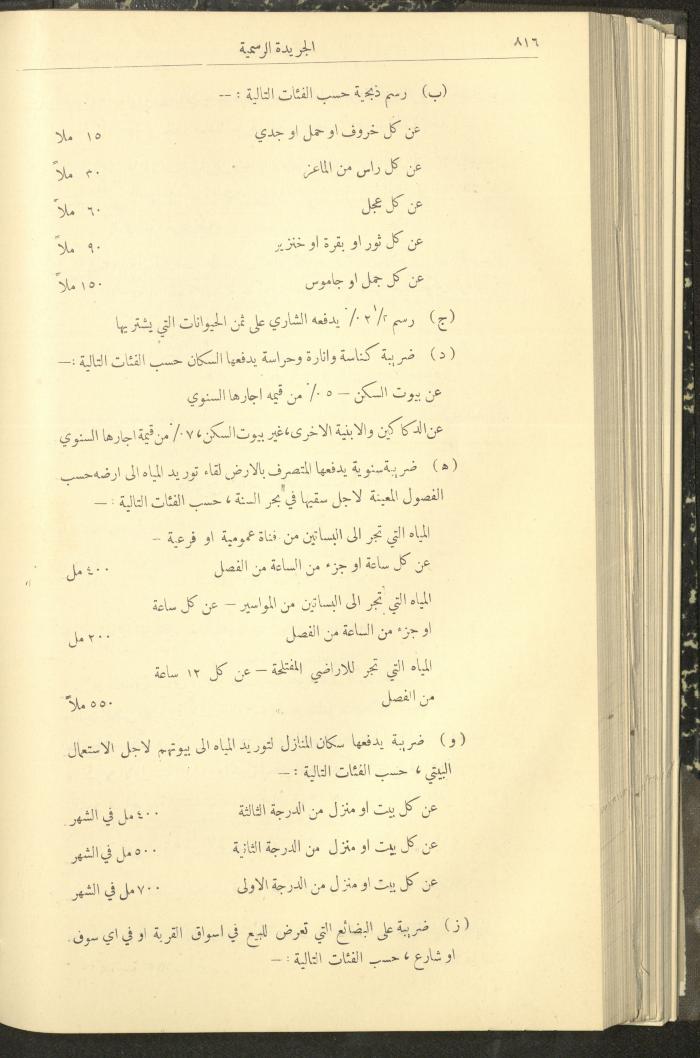 ٨١٦ الجريدة الرسمية
(ب) رسم ذبحية حسب الفئات التالية : —
عن كل خروف او حمل او جدي ١٥ ملا
عن كل راس من الماعز ٣٠ ملاً
عن كل عجل ٦٠ ملاً
عن كل ثور او بقرة او خنزير ٩٠ ملاً
عن كل جمل او جاموس ١٥٠ ملاً
(ج) رسم ١/٢ ٠٢٪ يدفعه الشاري على ثمن الحيوانات التي يشتريها
(د) ضريبة كناسة وانارة وحراسة يدفعها السكان حسب الفئات التالية :—
عن بيوت السكن — ٠٥٪ من قيمه اجارها السنوي
عن الدكاكين والابنية الاخرى، غير بيوت السكن، ٠٧٪ من قيمة اجارها السنوي
(ه) ضريبة سنوية يدفعها المتصرف بالارض لقاء توريد المياه الى ارضه حسب
الفصول المعينة لاجل سقيها في بحر السنة ، حسب الفئات التالية : —
المياه التي تجر الى البساتين من قناة عمومية او فرعية —
عن كل ساعة او جزء من الساعة من الفصل ٤٠٠ مل
المياه التي تجر الى البساتين من المواسير — عن كل ساعة
او جزء من الساعة من الفصل ٢٠٠ مل
المياه التي تجر للاراضي المفتلحة — عن كل ١٢ ساعة
من الفصل ٥٥٠ ملاً
(و) ضريبة يدفعها سكان المنازل لتوريد المياه الى بيوتهم لاجل الاستعمال
البيتي ، حسب الفئات التالية : —
عن كل بيت او منزل من الدرجة الثالثة ٤٠٠ مل في الشهر
عن كل بيت او منزل من الدرجة الثانية ٥٠٠ مل في الشهر
عن كل بيت او منزل من الدرجة الاولى ٧٠٠ مل في الشهر
(ز) ضريبة على البضائع التي تعرض للبيع في اسواق القرية او في اي سوق
او شارع ، حسب الفئات التالية : —